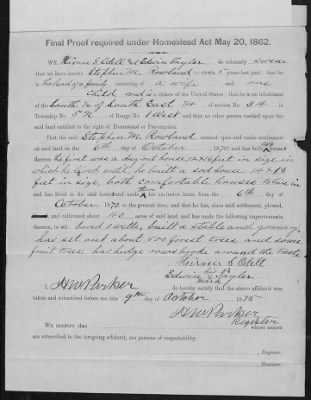 Final Proof required under Homestead Act May 20, 1862.
WE, Hiram C Odell & Edwin Tayler do solemnly swear
that we have known Stephen M. Rowland for over 5 years last past; that he
is head of a family consisting of a wife and one
child and is a citizen of the United States; that he is an inhabitant
of the South ½ of South East ¼ of section No. 34 in
Township No. 5 N of Range No. 1 West and that no other person resided upon the
said land entitled to the right of Homestead or Pre-emption.
That the said Stephen M. Rowland entered upon and made settlement
on said land on the 6th day of October, 1870, and has built a house
thereon He first was a dug out house 12x16 feet in size in
which he lived until he built a sod house 14x28
feet in size, both comfortable houses to live in
and has lived in the said house and made it his exclusive home from the 6th day of
October 1870 to the present time, and that he has, since said settlement, plowed,
and cultivated about 40 acres of said land, and has made the following improvements
thereon, to wit: bored 2 wells, built a stable and granary,
has set out about 500 forest trees and some
fruit trees, has hedge rows broke around the land,
Hiram C Odell
his
Edwin X Tayler
mark
I, H. W. Parker do hereby certify that the above affidavit was
taken and subscribed before me this 9th day of October 1875
H. W. Parker
Register
WE CERTIFY that whose names
are subscribed to the foregoing affidavit, are persons of respectability.
, Register.
, Receiver.